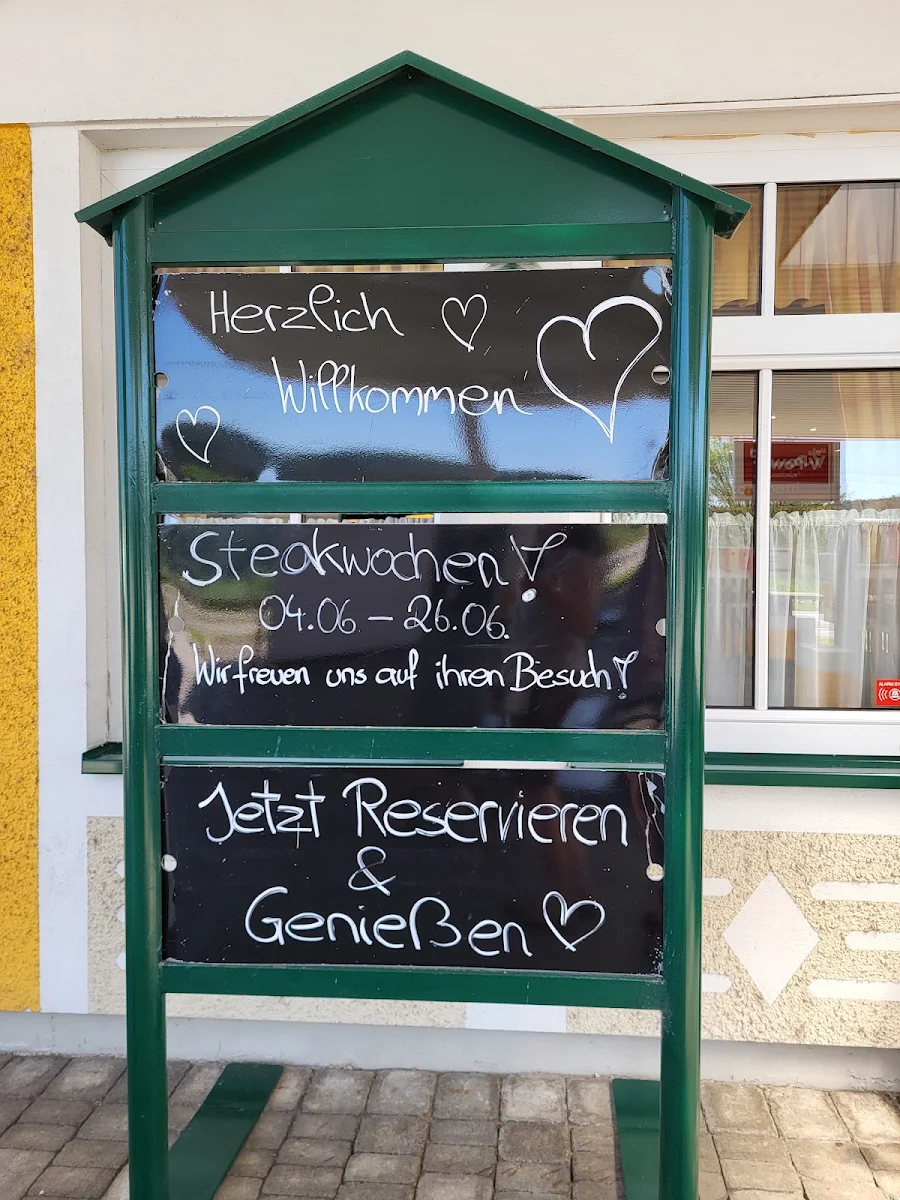 Herzlich
Willkommen
Steakwochen!
04.06 – 26.06.
Wir freuen uns auf ihren Besuch!
Jetzt Reservieren
&
Genießen